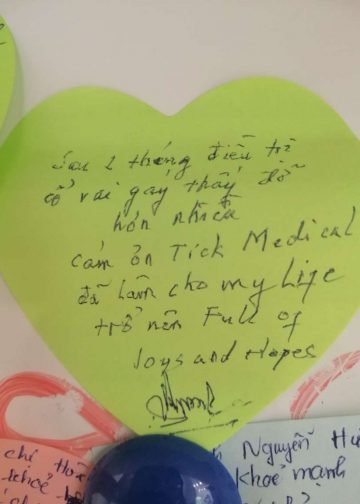 Sau 2 tháng điều trị
cổ vai gáy thấy đỡ
hơn nhiều
cảm ơn Tick Medical
đã làm cho my Life
trở nên Full of
Joys and Hopes
chí
Nguyễn
khoẻ mạnh